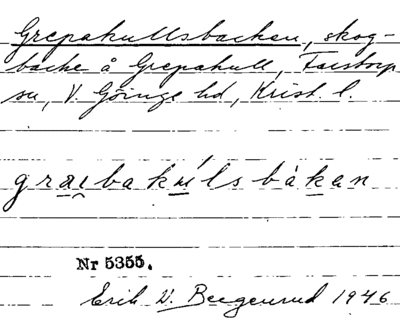 Grepakullsbacken, skog-
backe å Grepakull, Farstorp
sn, V. Göinge hd, Krist. l.
græɪbakúlsbàkan
Nr 5355.
Erik W. Bergenrud 1946